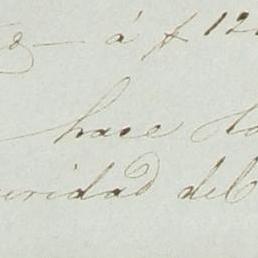 á $ 12
hace
uridad del